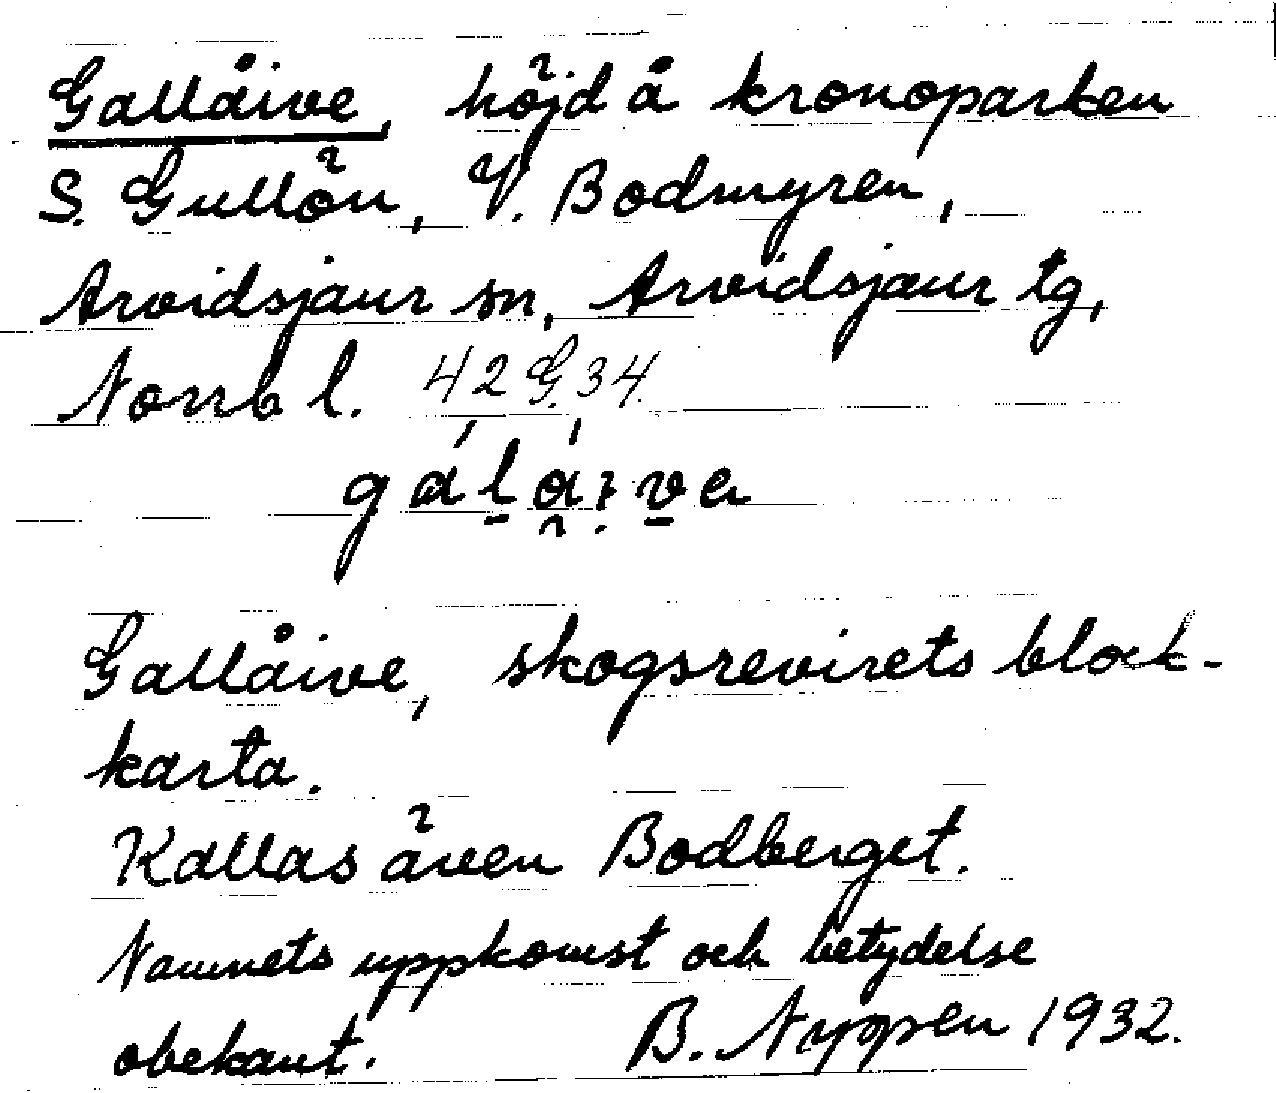 Gallåive, höjd å kronoparken
S. Gullön, V. Bodmyren,
Arvidsjaur sn, Arvidsjaur tg,
Norrb l. 42 G.34.
Gallåive, skogsrevirets block-
karta.
Kallas även Bodberget.
Namnets uppkomst och betydelse
obekant. B. Nygren 1932.